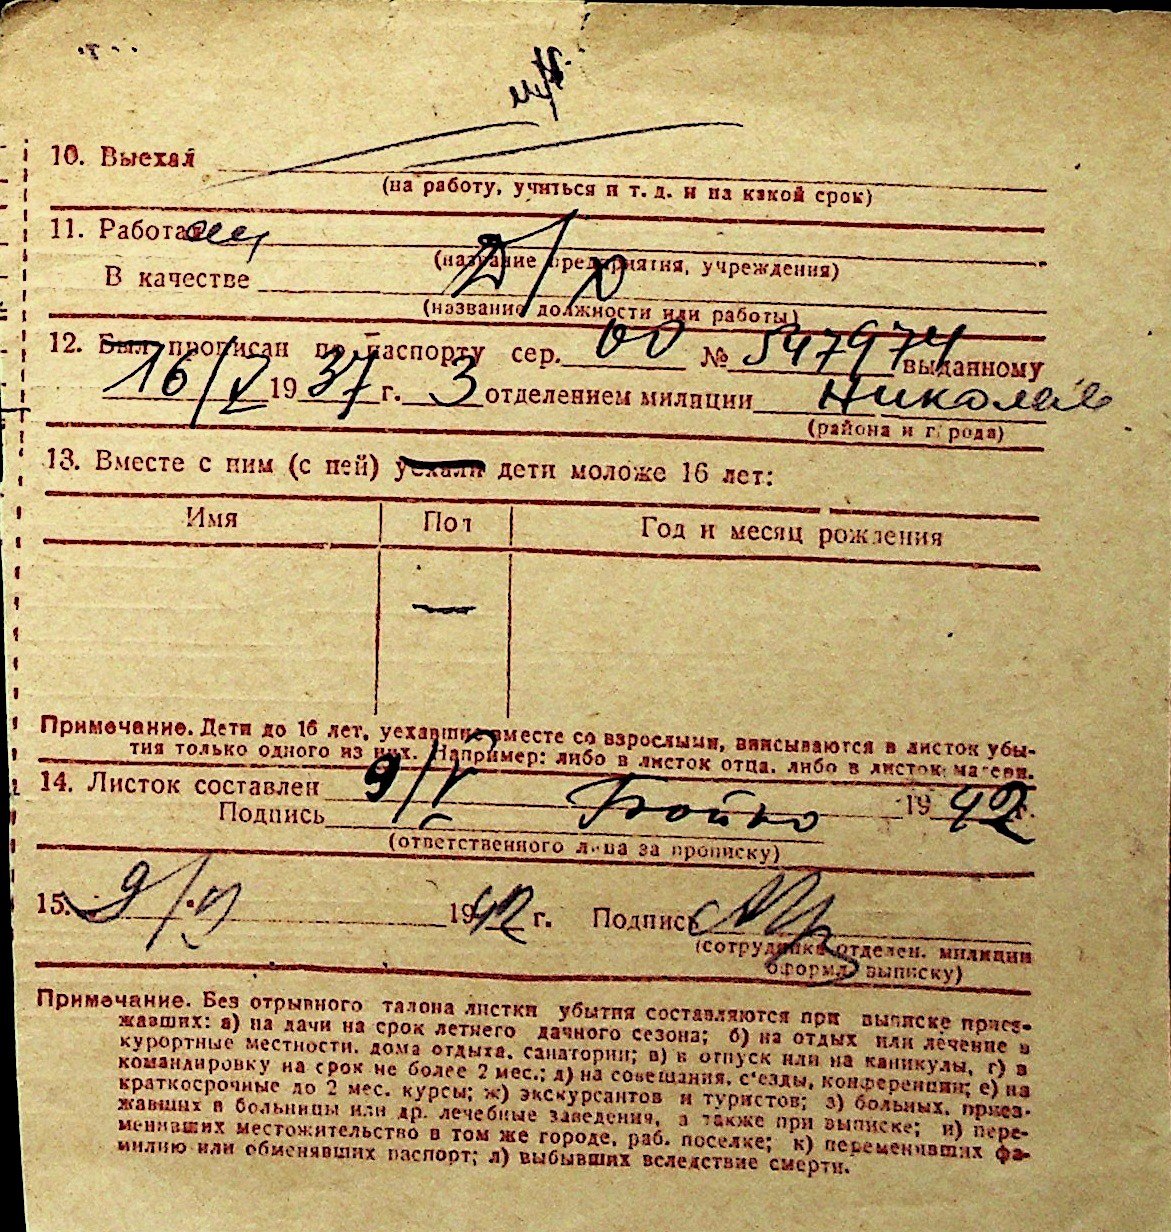 10. Выехал
(на работу, учиться и т. д. и на какой срок)
11. Работал
(название предприятия, учреждения)
В качестве Д/х
(название должности или работы)
12. Был прописан по паспорту сер. № 547974 выданному
16/V 1937 г. 3 отделением милиции Николаев
(района и города)
13. Вместе с ним (с ней) уехали дети моложе 16 лет:
Имя Пол Год и месяц рождения
—
Примечание. Дети до 16 лет, уехавшие вместе со взрослыми, вписываются в листок убы-
тия только одного из них. Например: либо в листок отца, либо в листок матери.
14. Листок составлен 9/V 1942 г.
Подпись Бойко
(ответственного лица за прописку)
15. 9/V 1942 г. Подпись
(сотрудника отделен. милиции
оформл. выписку)
Примечание. Без отрывного талона листки убытия составляются при выписке приез-
жавших: а) на дачи на срок летнего дачного сезона; б) на отдых или лечение в
курортные местности, дома отдыха, санатории; в) в отпуск или на каникулы, г) в
командировку на срок не более 2 мес.; д) на совещания, с'езды, конференции; е) на
краткосрочные до 2 мес. курсы; ж) экскурсантов и туристов; з) больных, приез-
жавших в больницы или др. лечебные заведения, а также при выписке; и) пере-
менивших местожительство в том же городе, раб. поселке; к) переменивших фа-
милию или обменявших паспорт; л) выбывших вследствие смерти.